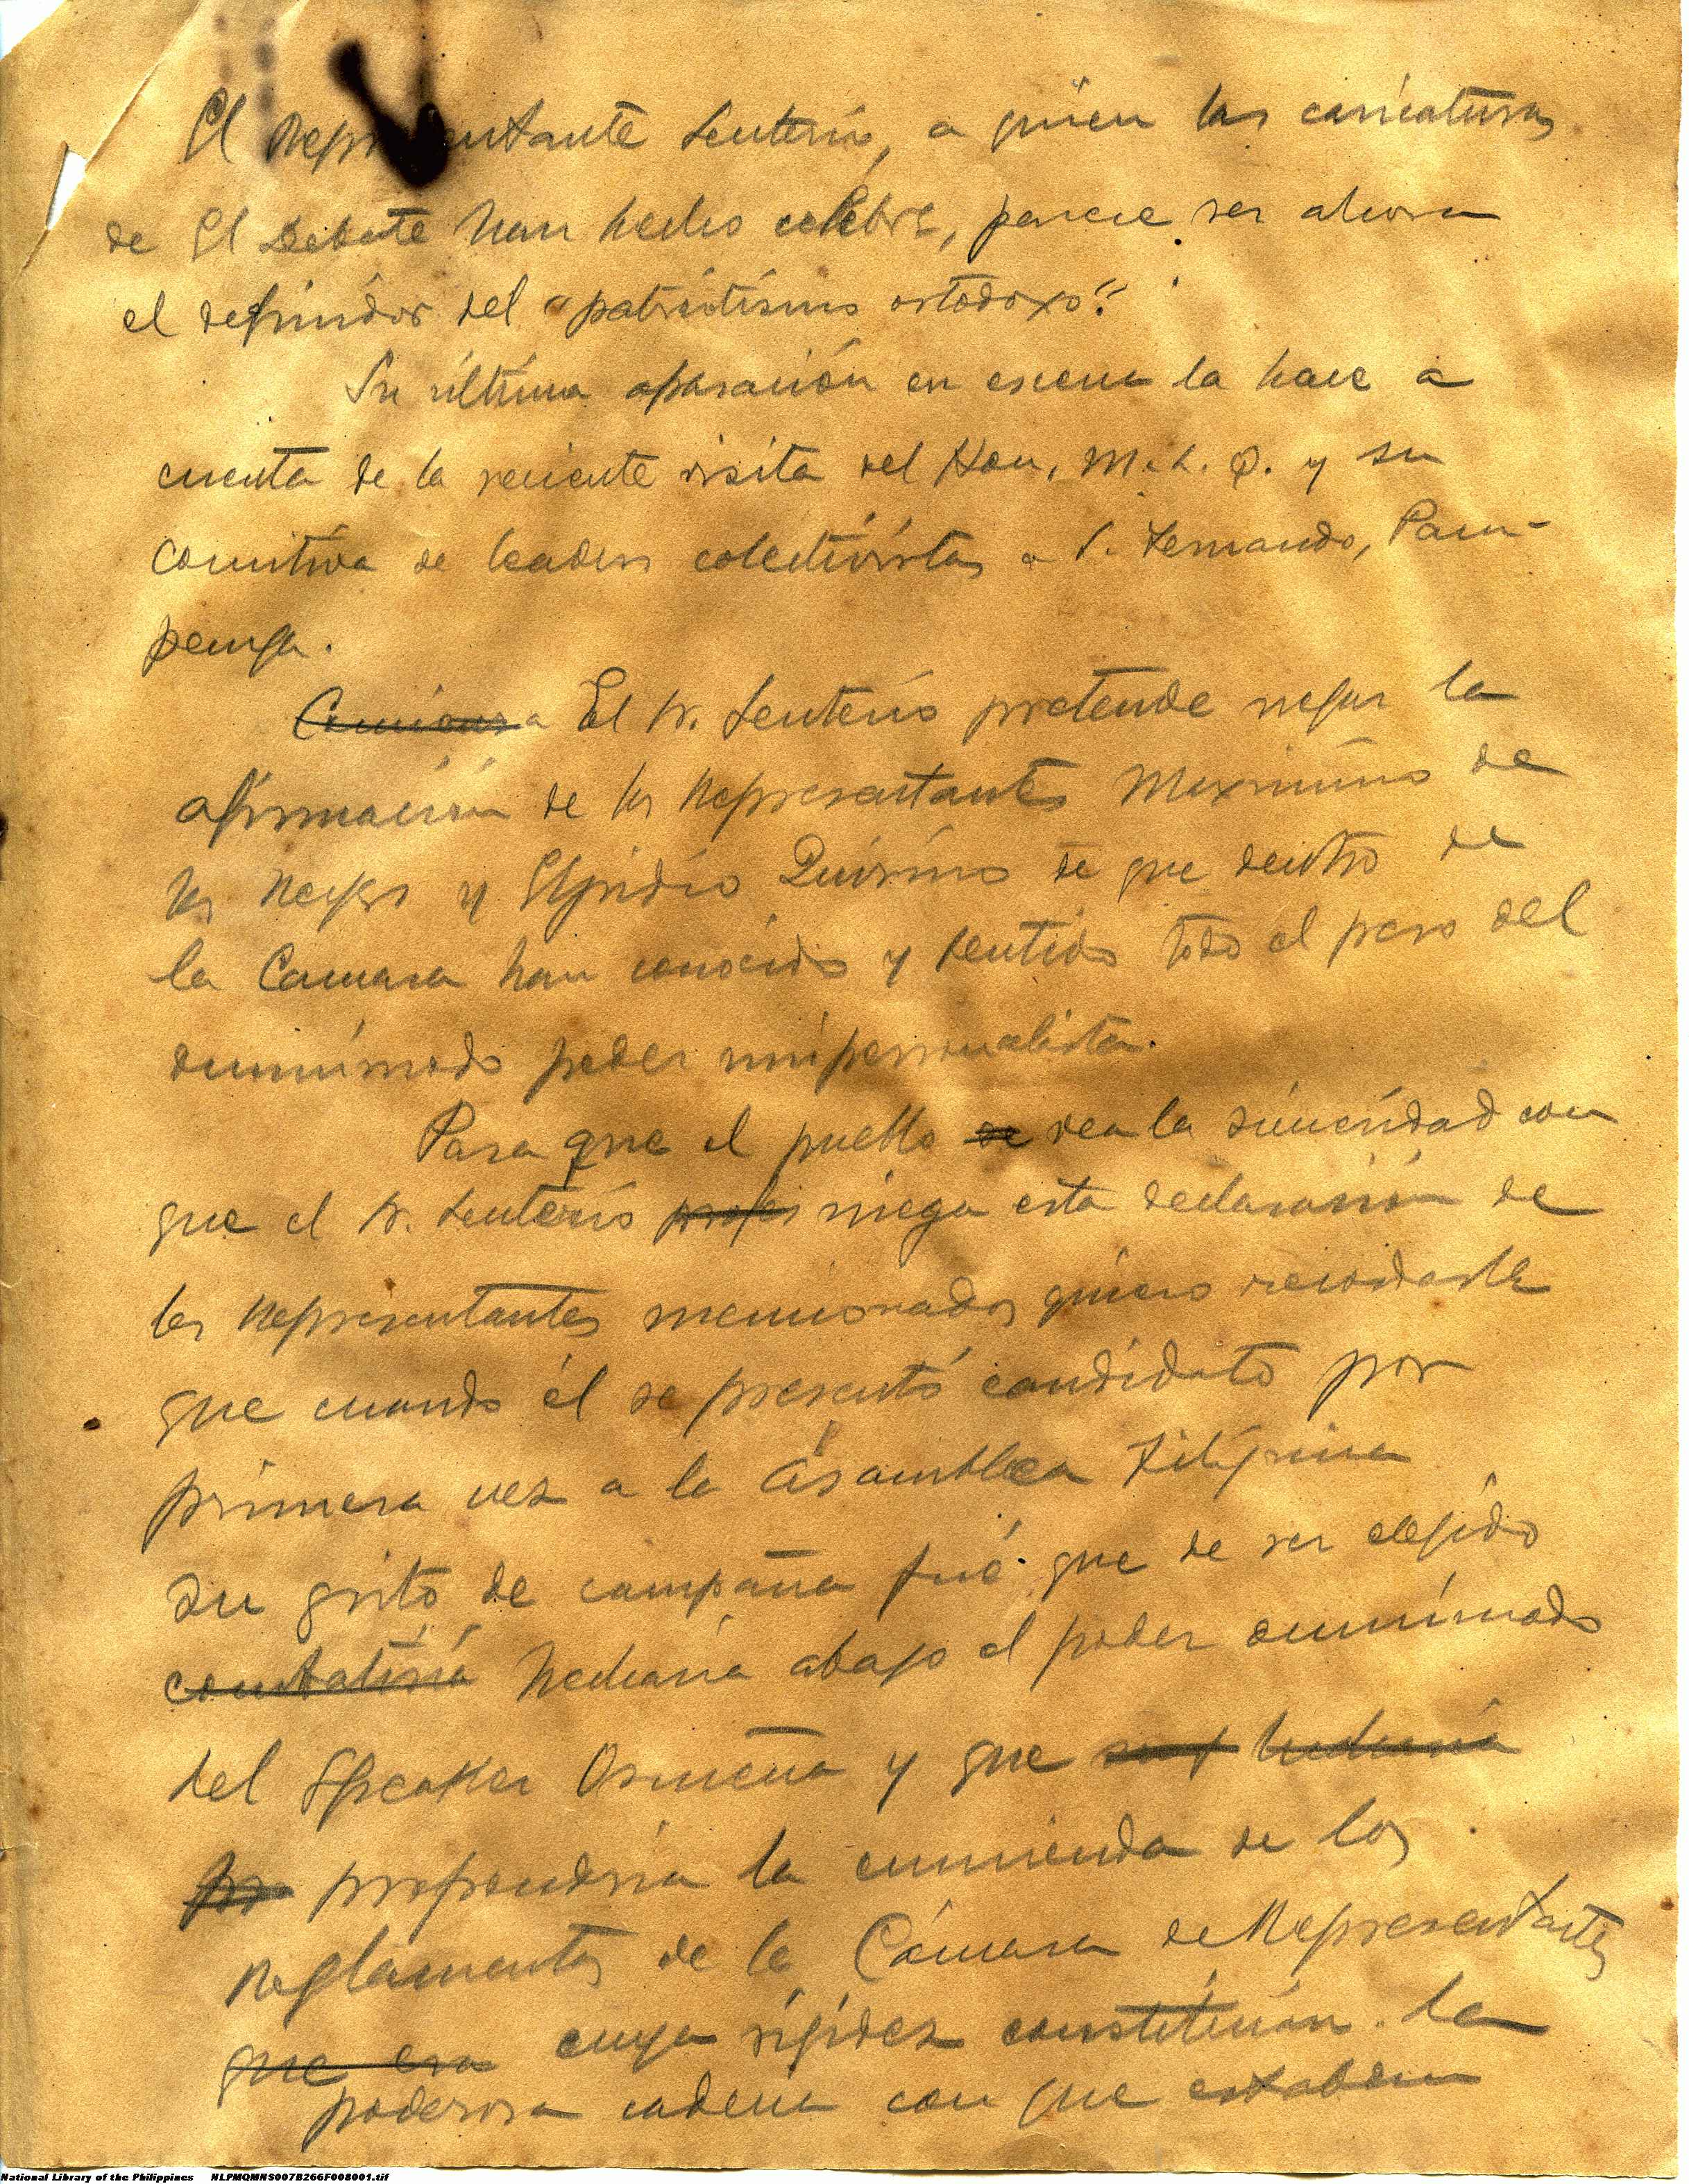 El Representante Lenterio, a quien las caricaturas
de El Debate han hecho celebre, parece ser ahora
el definidor del "patriotismo ortodoxo".
Su última aparación en escena la hace a
cuenta de la reciente visita del Hon. M. L. Q. y su
comitiva de leaders colectivistas a S. Fernando, Pam-
panga.
Comienza El Sr. Lenterio pretende negar la
afirmación de los Representantes Maximino de
los Reyes y Elpidio Quirino de que dentro de
la Camara han conocido y sentido todo el peso del
omnímodo poder unipersonalista.
Para que el pueblo se vea la sinceridad con
que el Sr. Lenterio niega esta declaración de
los Representantes mencionados quiero recordarle
que cuando él se presentó candidato por
primera vez a la Asamblea Filipina
su grito de campaña fué que de ser elegido
combatiría hecharia abajo el poder omnímodo
del Speaker Osmeña y que
pro propondria la enmienda de los
Reglamentos de la Cámara de Representantes
que era cuya rígidez constituían la
poderosa cadena con que estaban
National Library of the Philippines NLPMQMNS007B266F008001.tif